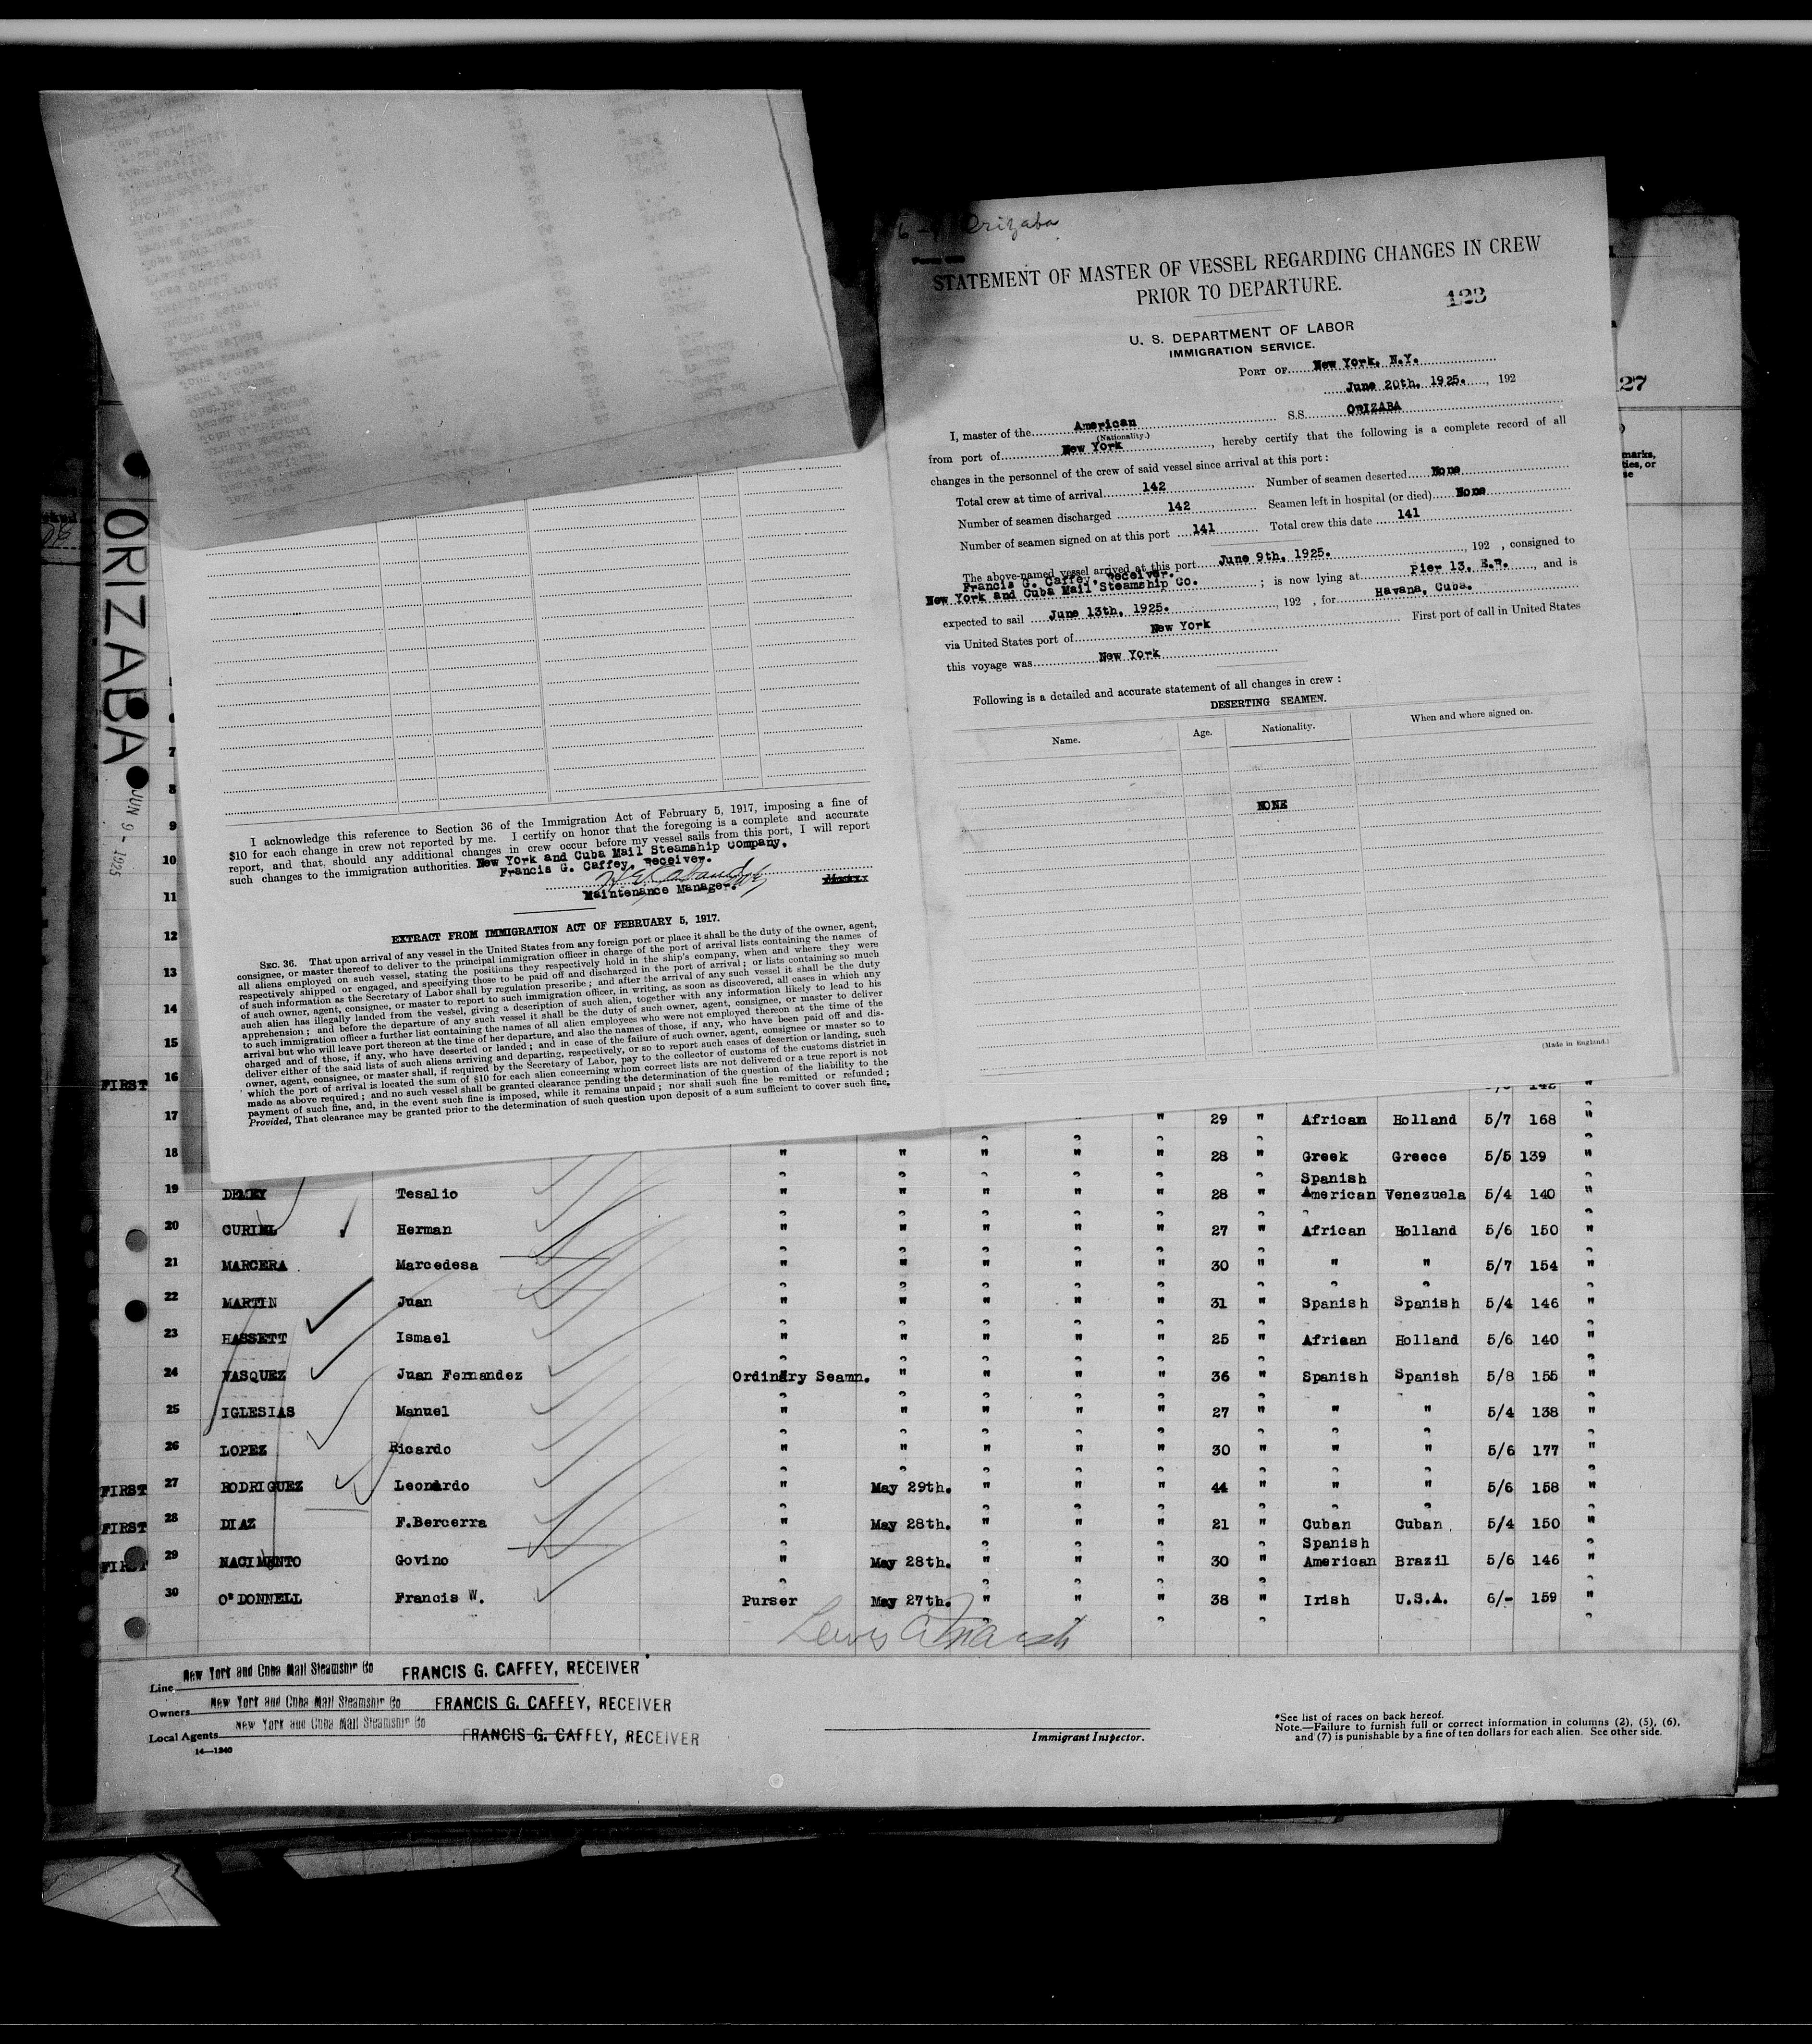 Orizaba
STATEMENT OF MASTER OF VESSEL REGARDING CHANGES IN CREW
PRIOR TO DEPARTURE.
123
U. S. DEPARTMENT OF LABOR
IMMIGRATION SERVICE.
PORT OF New York, N.Y.
June 20th, 1925. , 192
I, master of the American S.S. ORIZABA
(Nationality.)
from port of New York , hereby certify that the following is a complete record of all
changes in the personnel of the crew of said vessel since arrival at this port :
Total crew at time of arrival 142 Number of seamen deserted None
Number of seamen discharged 142 Seamen left in hospital (or died) None
Number of seamen signed on at this port 141 Total crew this date 141
The above-named vessel arrived at this port June 9th, 1925. , 192 , consigned to
Francis G. Caffey, Receiver.
New York and Cuba Mail Steamship Co. ; is now lying at Pier 13, E.R. , and is
expected to sail June 13th, 1925. , 192 , for Havana, Cuba.
via United States port of New York First port of call in United States
this voyage was New York
Following is a detailed and accurate statement of all changes in crew :
DESERTING SEAMEN.
Name. Age. Nationality. When and where signed on.
NONE
(Made in England.)
I acknowledge this reference to Section 36 of the Immigration Act of February 5, 1917, imposing a fine of
$10 for each change in crew not reported by me. I certify on honor that the foregoing is a complete and accurate
report, and that, should any additional changes in crew occur before my vessel sails from this port, I will report
such changes to the immigration authorities. New York and Cuba Mail Steamship Company.
Francis G. Caffey, Receiver.
Maintenance Manager.
EXTRACT FROM IMMIGRATION ACT OF FEBRUARY 5, 1917.
SEC. 36. That upon arrival of any vessel in the United States from any foreign port or place it shall be the duty of the owner, agent,
consignee, or master thereof to deliver to the principal immigration officer in charge of the port of arrival lists containing the names of
all aliens employed on such vessel, stating the positions they respectively hold in the ship's company, when and where they were
respectively shipped or engaged, and specifying those to be paid off and discharged in the port of arrival ; or lists containing so much
of such information as the Secretary of Labor shall by regulation prescribe ; and after the arrival of any such vessel it shall be the duty
of such owner, agent, consignee, or master to report to such immigration officer, in writing, as soon as discovered, all cases in which any
such alien has illegally landed from the vessel, giving a description of such alien, together with any information likely to lead to his
apprehension ; and before the departure of any such vessel it shall be the duty of such owner, agent, consignee, or master to deliver
to such immigration officer a further list containing the names of all alien employees who were not employed thereon at the time of the
arrival but who will leave port thereon at the time of her departure, and also the names of those, if any, who have been paid off and dis-
charged and of those, if any, who have deserted or landed ; and in case of the failure of such owner, agent, consignee or master so to
deliver either of the said lists of such aliens arriving and departing, respectively, or so to report such cases of desertion or landing, such
owner, agent, consignee, or master shall, if required by the Secretary of Labor, pay to the collector of customs of the customs district in
which the port of arrival is located the sum of $10 for each alien concerning whom correct lists are not delivered or a true report is not
made as above required ; and no such vessel shall be granted clearance pending the determination of the question of the liability to the
payment of such fine, and, in the event such fine is imposed, while it remains unpaid ; nor shall such fine be remitted or refunded ;
Provided, That clearance may be granted prior to the determination of such question upon deposit of a sum sufficient to cover such fine.
ORIZABA
JUN 9 - 1925
27
marks,
ties, or
se
7
8
9
10
11
12
13
14
15
FIRST 16 142 "
17 " 29 " African Holland 5/7 168 "
18 " " " " " 28 " Greek Greece 5/5 139 "
Spanish
19 DEMEY Tesalio " " " " " 28 " American Venezuela 5/4 140 "
20 CURIEL Herman " " " " " 27 " African Holland 5/6 150 "
21 MARCERA Marcedesa " " " " " 30 " " " 5/7 154 "
22 MARTIN Juan " " " " " 31 " Spanish Spanish 5/4 146 "
23 HASSETT Ismael " " " " " 25 " African Holland 5/6 140 "
24 VASQUEZ Juan Fernandez Ordinary Seamn. " " " " 36 " Spanish Spanish 5/8 155 "
25 IGLESIAS Manuel " " " " " 27 " " " 5/4 138 "
26 LOPEZ Ricardo " " " " " 30 " " " 5/6 177 "
FIRST 27 RODRIGUEZ Leonardo " May 29th. " " " 44 " " " 5/6 158 "
FIRST 28 DIAZ F.Bercerra " May 28th. " " " 21 " Cuban Cuban 5/4 150 "
Spanish
FIRST 29 NACIMENTO Govino " May 28th. " " " 30 " American Brazil 5/6 146 "
30 O'DONNELL Francis W. Purser May 27th. " " " 38 " Irish U.S.A. 6/- 159 "
Line New York and Cuba Mail Steamship Co FRANCIS G. CAFFEY, RECEIVER
Owners New York and Cuba Mail Steamship Co FRANCIS G. CAFFEY, RECEIVER
Local Agents New York and Cuba Mail Steamship Co FRANCIS G. CAFFEY, RECEIVER
14—1240
Immigrant Inspector.
*See list of races on back hereof.
Note.—Failure to furnish full or correct information in columns (2), (5), (6),
and (7) is punishable by a fine of ten dollars for each alien. See other side.